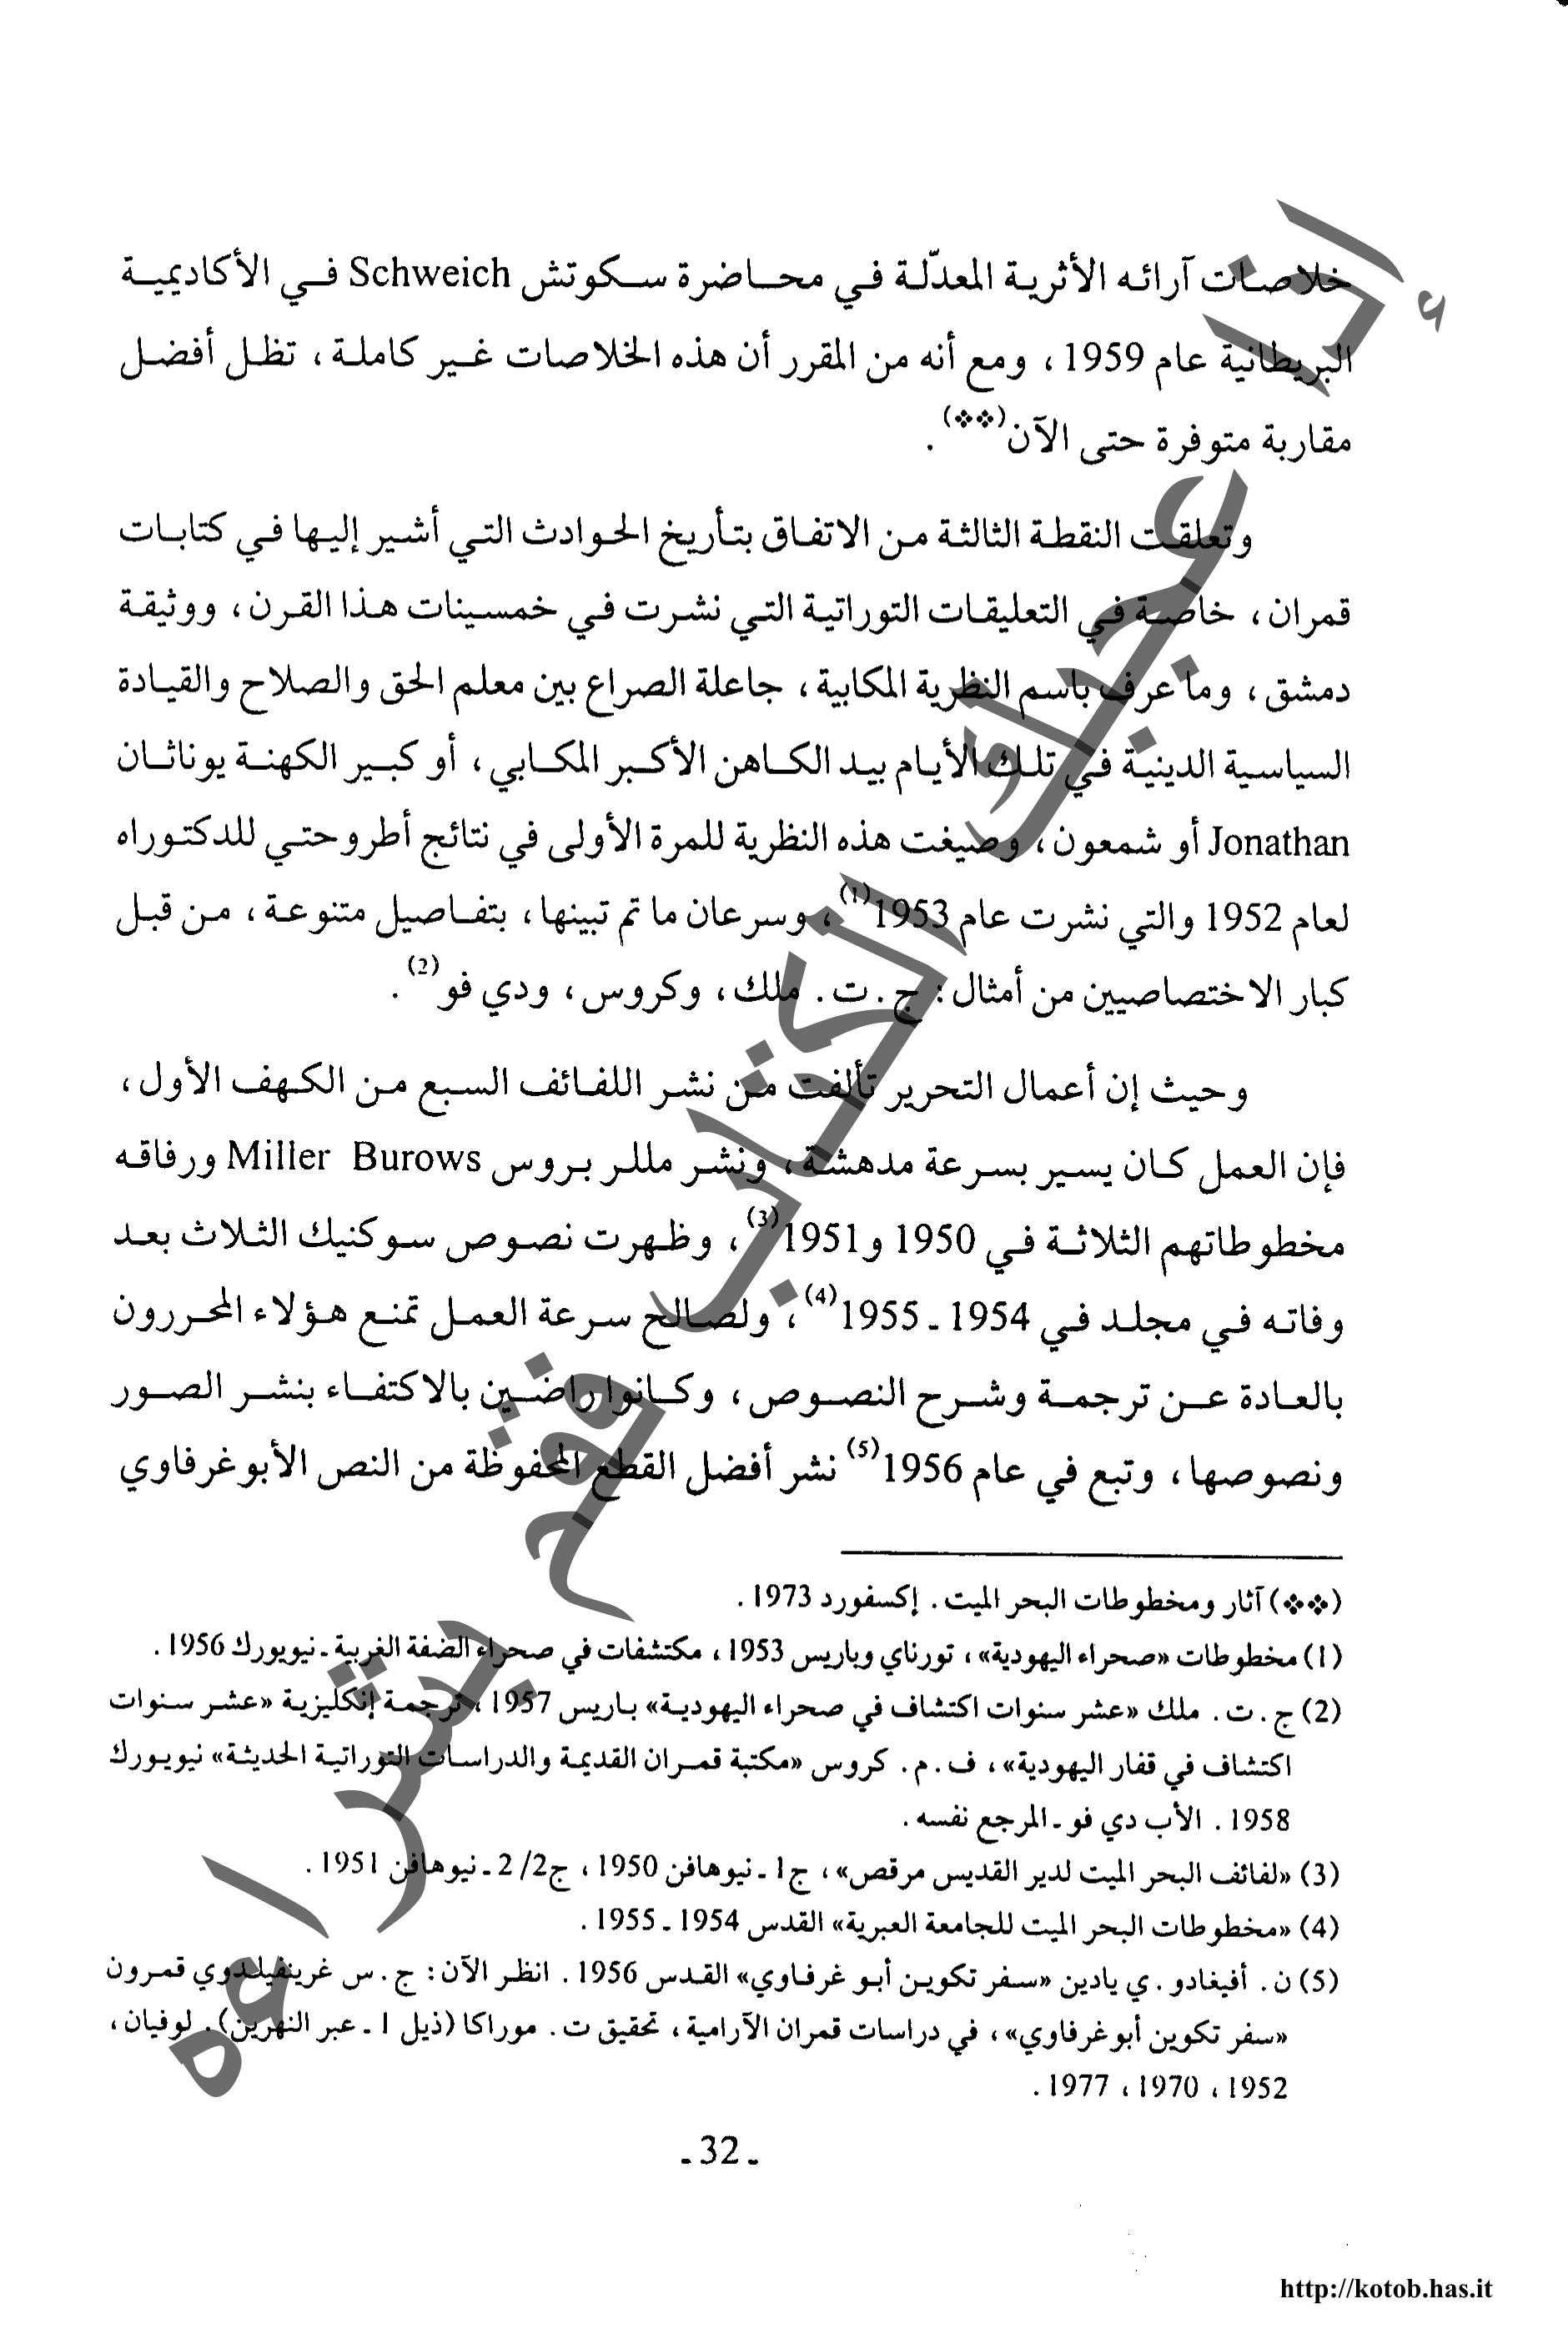 خلاصات آرائه الأثرية المعدّلة في محاضرة سكوتش Schweich في الأكاديمية
البريطانية عام 1959 ، ومع أنه من المقرر أن هذه الخلاصات غير كاملة ، تظل أفضل
مقاربة متوفرة حتى الآن(❖❖) .
وتعلقت النقطة الثالثة من الاتفاق بتأريخ الحوادث التي أشير إليها في كتابات
قمران ، خاصة في التعليقات التوراتية التي نشرت في خمسينات هذا القرن ، ووثيقة
دمشق ، وما عرف باسم النظرية المكابية ، جاعلة الصراع بين معلم الحق والصلاح والقيادة
السياسية الدينية في تلك الأيام بيد الكاهن الأكبر المكابي ، أو كبير الكهنة يوناثان
Jonathan أو شمعون ، وصيغت هذه النظرية للمرة الأولى في نتائج أطروحتي للدكتوراه
لعام 1952 والتي نشرت عام 1953(1) ، وسرعان ما تم تبينها ، بتفاصيل متنوعة ، من قبل
كبار الاختصاصيين من أمثال : ج . ت . ملك ، وكروس ، ودي فو(2) .
وحيث إن أعمال التحرير تألفت من نشر اللفائف السبع من الكهف الأول ،
فإن العمل كان يسير بسرعة مدهشة ، ونشر مللر بروس Miller Burows ورفاقه
مخطوطاتهم الثلاثة في 1950 و1951(3) ، وظهرت نصوص سوكنيك الثلاث بعد
وفاته في مجلد في 1954 ـ 1955(4) ، ولصالح سرعة العمل تمنع هؤلاء المحررون
بالعادة عن ترجمة وشرح النصوص ، وكانوا راضين بالاكتفاء بنشر الصور
ونصوصها ، وتبع في عام 1956(5) نشر أفضل القطع المحفوظة من النص الأبوغرفاوي
(❖❖) آثار ومخطوطات البحر الميت . إكسفورد 1973 .
(1) مخطوطات «صحراء اليهودية» ، تورناي وباريس 1953 ، مكتشفات في صحراء الضفة الغربية ـ نيويورك 1956 .
(2) ج . ت . ملك «عشر سنوات اكتشاف في صحراء اليهودية» باريس 1957 ، ترجمة إنكليزية «عشر سنوات
اكتشاف في قفار اليهودية» ، ف . م . كروس «مكتبة قمران القديمة والدراسات التوراتية الحديثة» نيويورك
1958 . الأب دي فو ـ المرجع نفسه .
(3) «لفائف البحر الميت لدير القديس مرقص» ، ج1 ـ نيوهافن 1950 ، ج2/ 2 ـ نيوهافن 1951 .
(4) «مخطوطات البحر الميت للجامعة العبرية» القدس 1954 ـ 1955 .
(5) ن . أفيغادو . ي يادين «سفر تكوين أبو غرفاوي» القدس 1956 . انظر الآن : ج . س غرينفيلدوي قمرون
«سفر تكوين أبوغرفاوي» ، في دراسات قمران الآرامية ، تحقيق ت . موراكا (ذيل 1 ـ عبر النهرين) . لوفيان ،
1952 ، 1970 ، 1977 .
ـ 32 ـ
إذا أعجبك الكتاب قم بشراءه
http://kotob.has.it